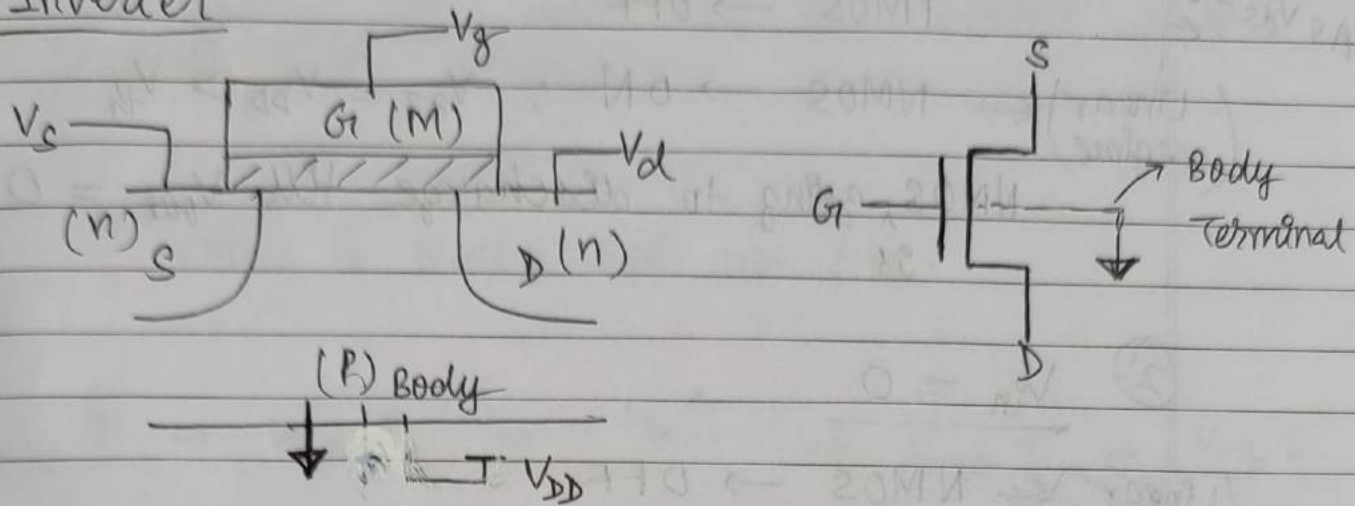 Inverter
Vg
Vs
G (M)
Vd
(n) S
D (n)
(P) Body
VDD
S
G
Body
Terminal
D